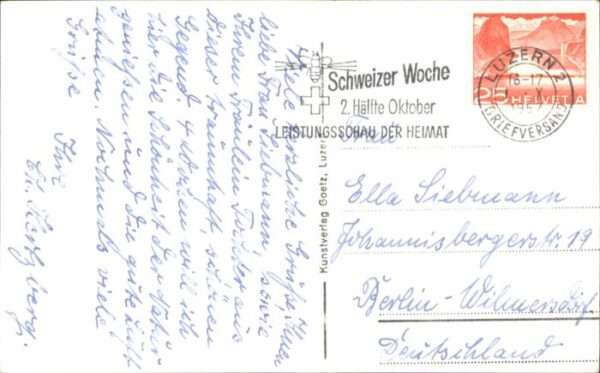 Viele herzliche Grüße Ihnen
liebe Frau Siebmann sowie
Ihrem Fräulein aus
dieser traumhaft schönen
Gegend. 4 will ich
hier die Schönheit der Natur
genießen und die gute Luft
atmen. Nochmals viele
Grüße
Ihre
Schweizer Woche
2. Hälfte Oktober
LEISTUNGSSCHAU DER HEIMAT
LUZERN 2
16-17
BRIEFVERSAND
25 HELVETIA
Kunstverlag Goetz, Luzern
Frau
Ella Siebmann
Johannisbergerstr. 19
Berlin-Wilmersdorf
Deutschland